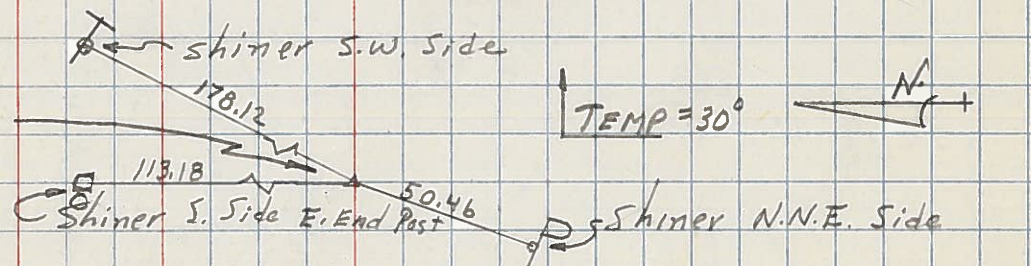 shiner S.W. Side
178.12
TEMP = 30°
N.
113.18
50.46
Shiner S. Side E. End Post
Shiner N.N.E. Side